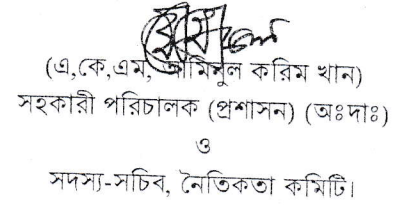 (এ,কে,এম, আমিনুল করিম খান)
সহকারী পরিচালক (প্রশাসন) (অঃদাঃ)
ও
সদস্য-সচিব, নৈতিকতা কমিটি।